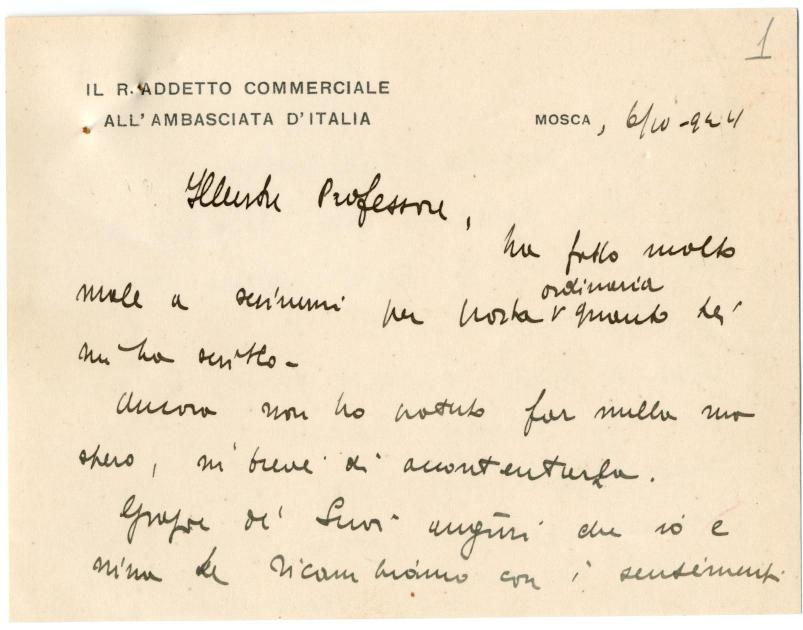 1
IL R. ADDETTO COMMERCIALE
ALL'AMBASCIATA D'ITALIA
MOSCA, 6/10-924
Illustre Professore,
ha fatto molto
male a scrivermi per posta ordinaria quanto Lei
mi ha scritto -
Ancora non ho potuto far nulla ma
spero, in breve di accontentarla.
Grazie dei Suoi auguri che io e
Nina Le ricambiamo con i sentimenti